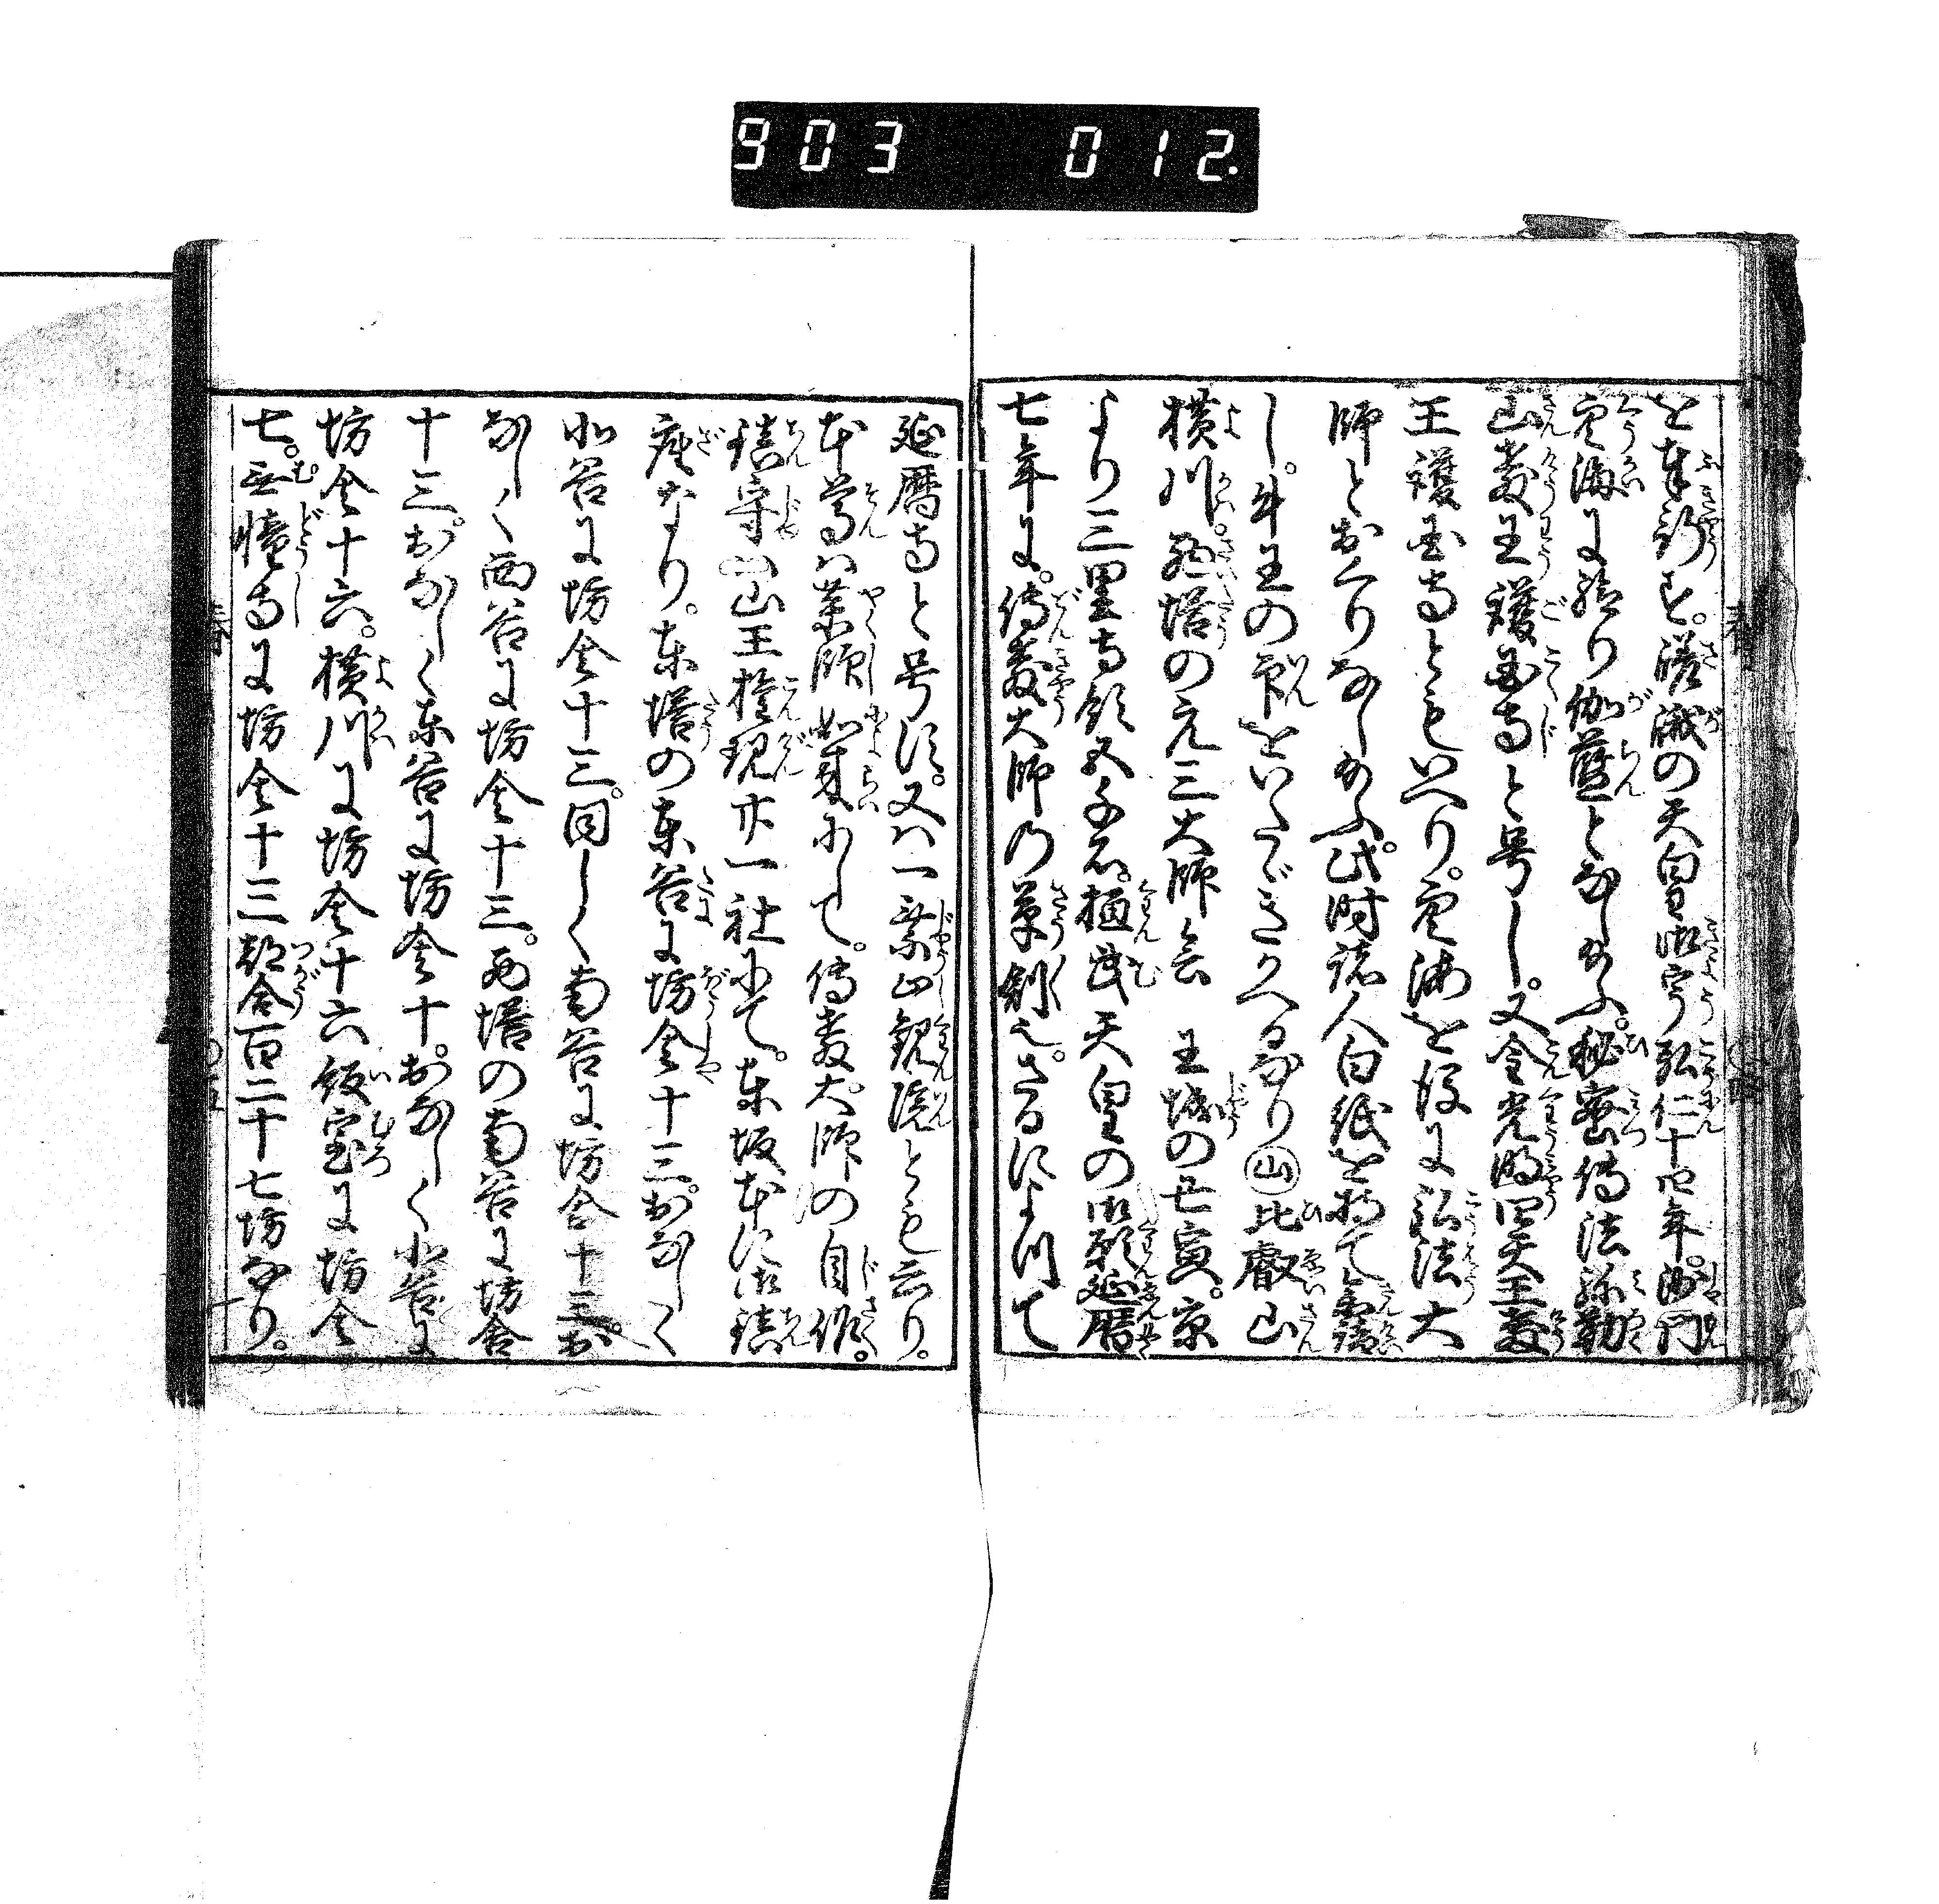 903 012.
を奉行せ。嵯峨の天皇御宇弘仁十四年。沙門
空海に給り伽藍となし給ふ。秘密傳法弥勒
山教王護国寺と号し。又金光明四天王教
王護国寺ともいへり。空海を後に弘法大
師とおくりなし給ふ。此时諸人白紙を捧て
し。牛王の印をいたゞきかへるなり㊀山比叡山
横川。西塔の元三大師会 王城の丑寅。京
より三里寺領五千石。桓武天皇の御願延暦
七年に。傳教大師の草創也。さるによつて
延暦寺と号す。又ハ一乗止観院とも云り。
本尊ハ薬師如来にして。傳教大師の自作。
鎮守山王権現廿一社にて。東坂本に御鎮
座なり。東塔の東谷に坊舎十三。おなしく
北谷に坊舎十三。同しく南谷に坊舎十三。お
なしく西谷に坊舎十三。西塔の南谷に坊舎
十三。おなしく東谷に坊舎十。おなしく北谷に
坊舎十六。横川に坊舎十六飯室に坊舎
七。無幢寺に坊舎十三都合百二十七坊なり。